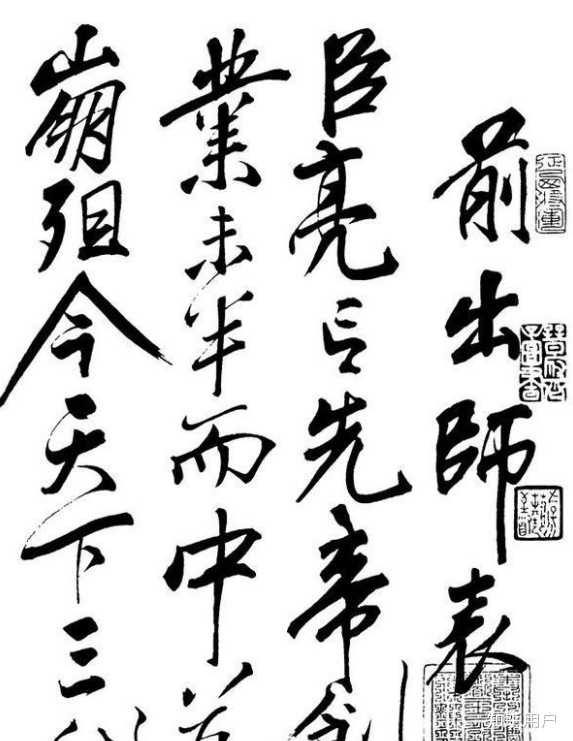 前出師表
臣亮言先帝創
業未半而中
崩殂今天下三
用户